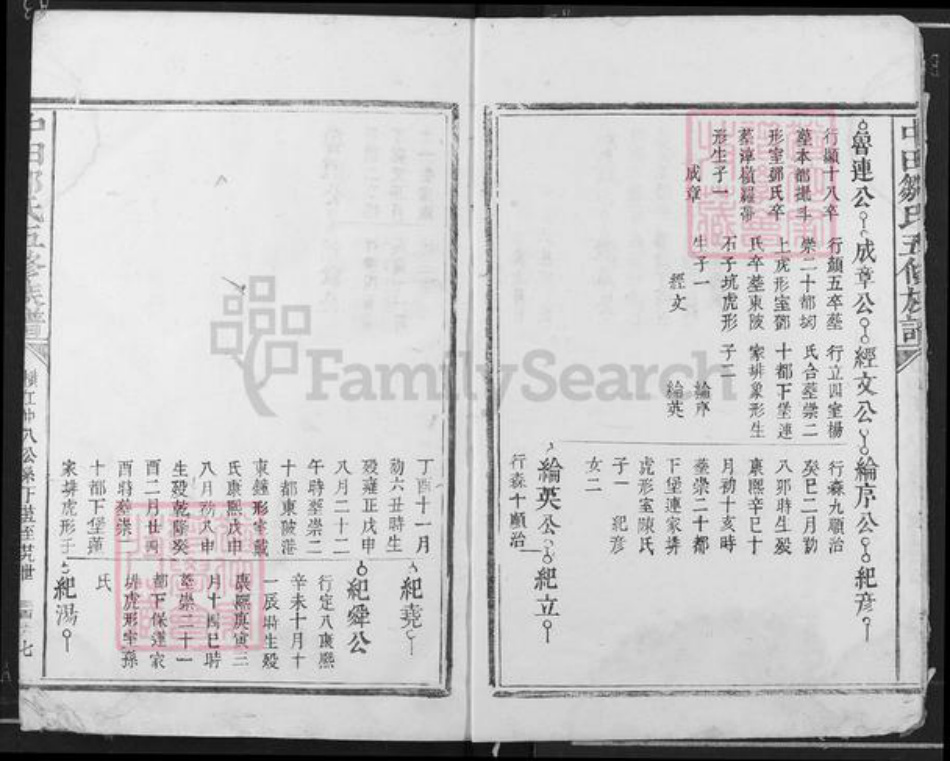 中田鄒氏五修族譜
魯連公 成章公 經文公 綸序公 紀彥
行顯十八卒
墓本都撮斗
形室鄧氏卒
墓漳嶺羅帶
形生子一
成章
行顏五卒墓
崇二十都坳
上虎形室鄧
氏卒墓東陂
石子坑虎形
生子一
經文
行立四室楊
氏合墓崇二
十都下堡連
家排象形生
子二
綸序
綸英
行森九順治
癸巳二月初
八卯時生歿
康熙辛巳十
月初十亥時
墓崇二十都
下堡連家排
虎形室陳氏
子一 紀彥
女二
綸英公 紀立
行森十順治
丁酉十一月
初六丑時生
歿雍正戊申
八月二十二
午時墓崇二
十都東陂港
東鐘形室戴
氏康熙戊申
八月初八申
生歿乾隆癸
酉二月廿四
酉時墓崇
十都下堡蓮
家排虎形子
紀堯
紀舜公
行定八康熙
辛未十月十
一辰時生歿
康熙庚寅三
月十四巳時
墓崇二十一
都下保蓮家
排虎形室孫
氏
紀湯
中田鄒氏五修族譜
七
FamilySearch